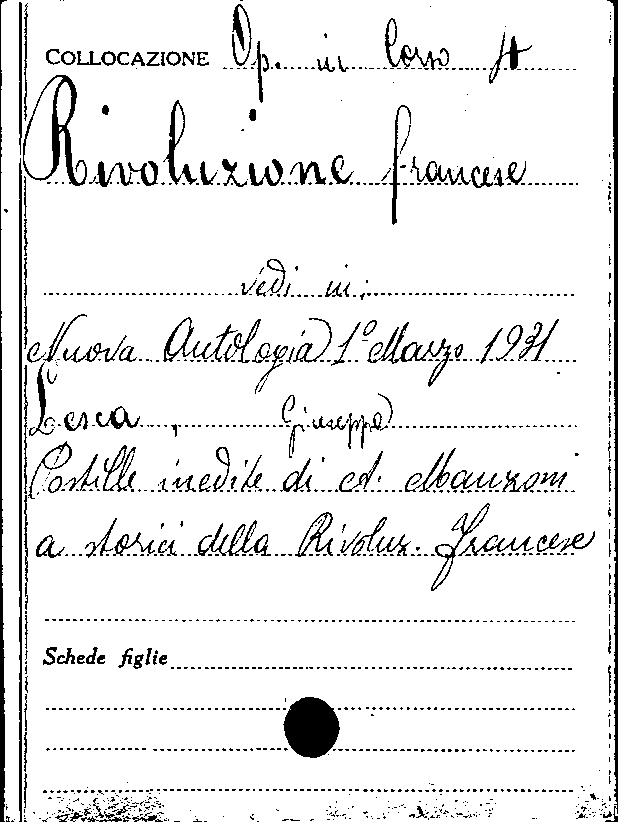 COLLOCAZIONE Op. in Corso
Rivoluzione francese
vedi in:
Nuova Antologia 1º Marzo 1931
Lesca, Giuseppe
Postille inedite di A. Manzoni
a storici della Rivoluz. Francese
Schede figlie